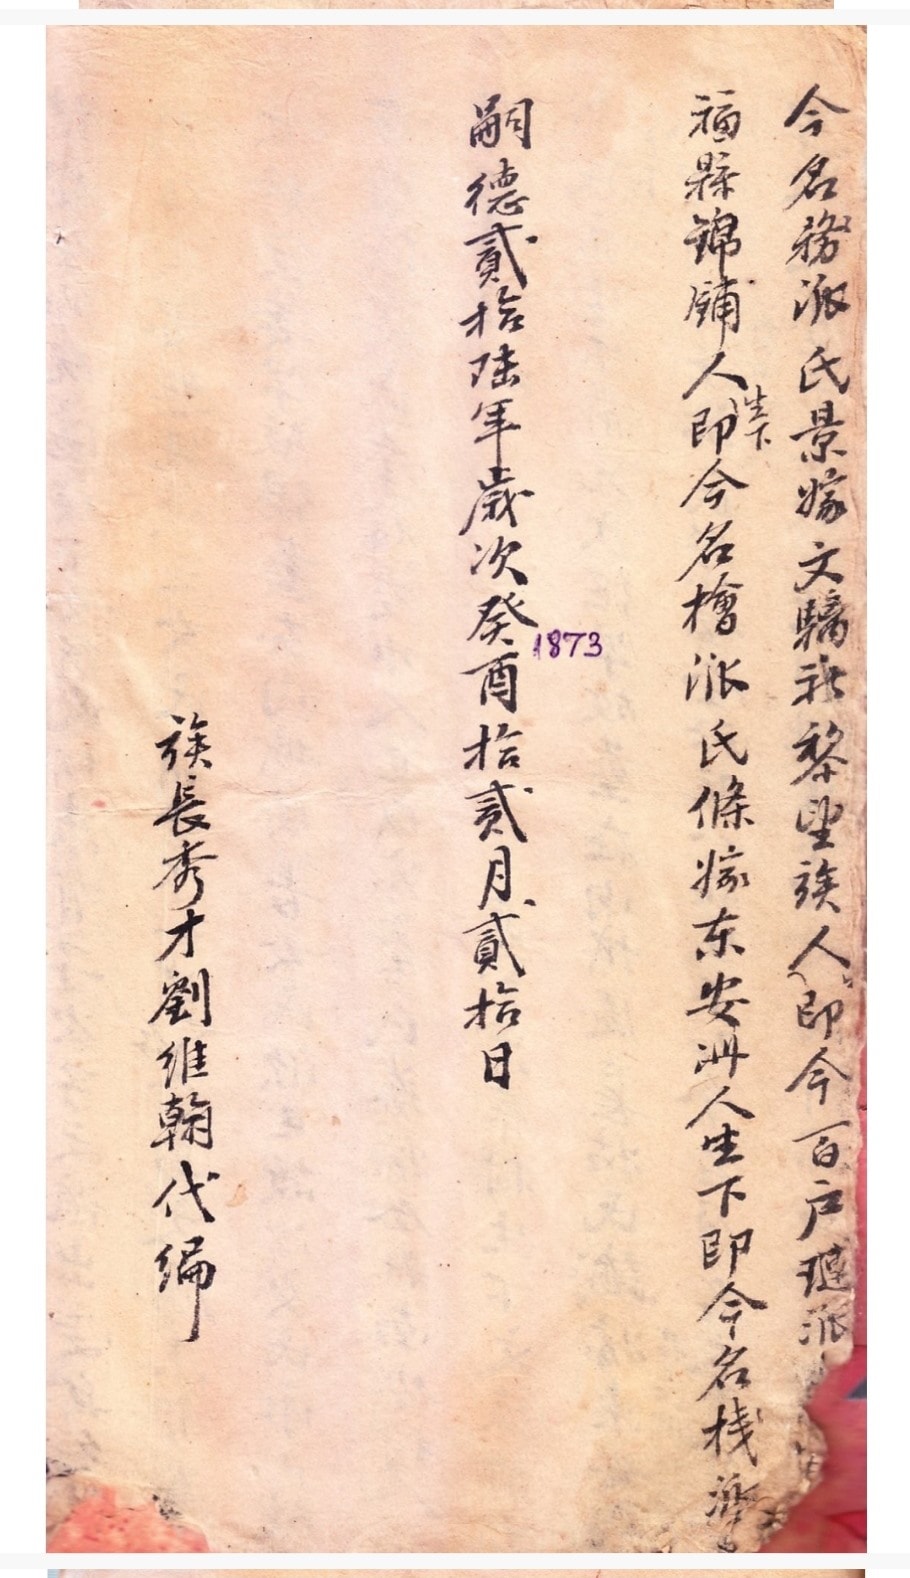 今名務派氏景嫁文驕社黎望族人即今百户璉派
福縣錦鋪人生下即今名檜派氏條嫁东安洲人生下即今名棧派
嗣德貳拾陸年歲次癸酉拾貳月貳拾日
1873
族長秀才劉維翰代編